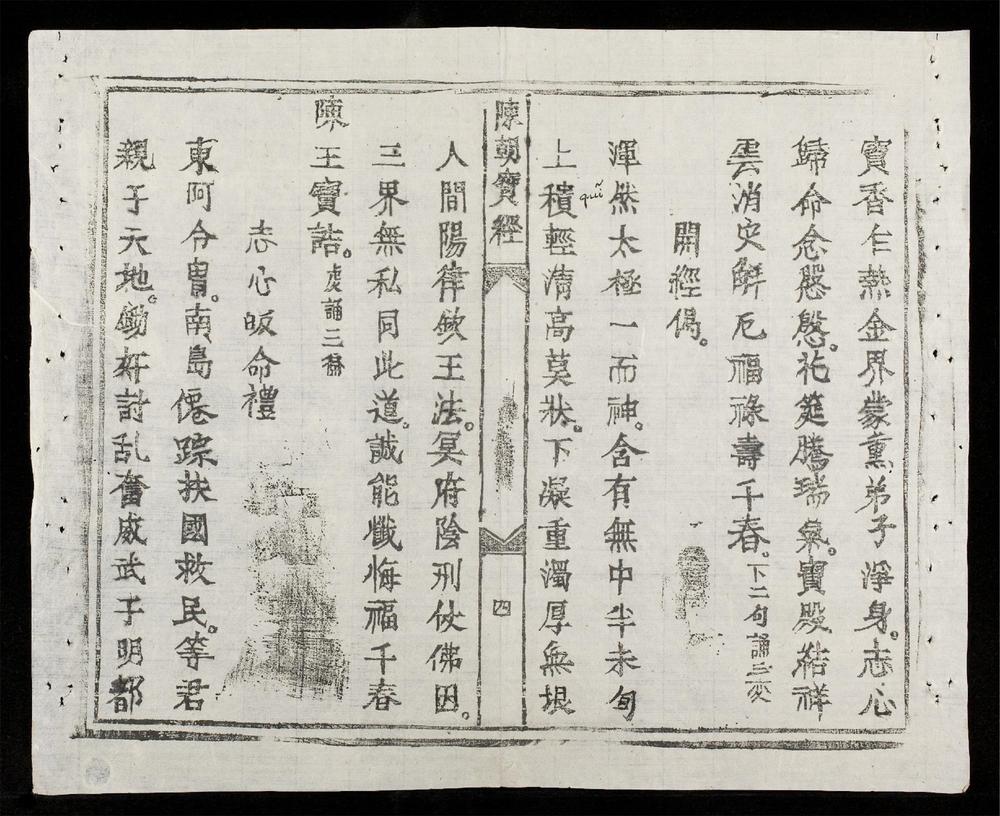 寶香乍热金界蒙薰弟子淨身。志心
歸命念慇慇。花筵騰瑞氣。寶殿結祥
雲消灾觧厄福祿壽千春。下二句誦三变
開經偈。
渾然太極一而神。含有無中半未旬
quĩ
上積輕清高莫狀。下凝重濁厚無垠
陳朝寶經
四
人間陽律欽王法。冥府陰刑仗佛因。
三界無私同此道。誠能懺悔福千春
陳王寶誥。䖍誦三徧
志心皈命禮
東阿令胄。南島僊踪扶國救民。等君
親于天地。鋤奸討乱奮威武于明都